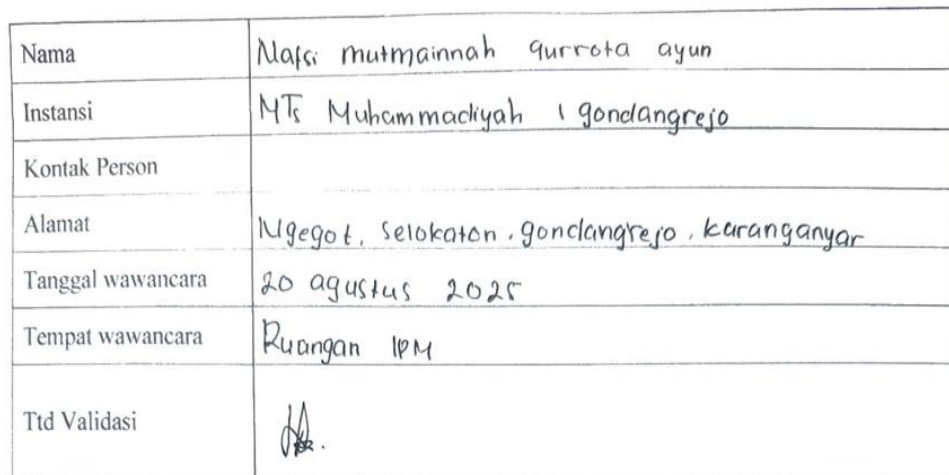 Nama Nafsi mutmainnah qurrota ayun
Instansi MTs Muhammadiyah 1 gondangrejo
Kontak Person
Alamat Ngegot, Selokaton, gondangrejo, karanganyar
Tanggal wawancara 20 agustus 2025
Tempat wawancara Ruangan IPM
Ttd Validasi